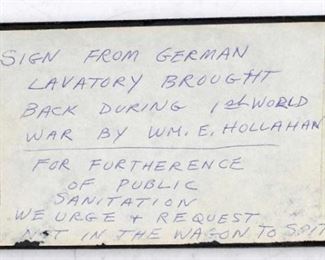 SIGN FROM GERMAN
LAVATORY BROUGHT
BACK DURING 1st WORLD
WAR BY WM. E. HOLLAHAN
FOR FURTHERENCE
OF PUBLIC
SANITATION
WE URGE + REQUEST
NOT IN THE WAGON TO SPIT